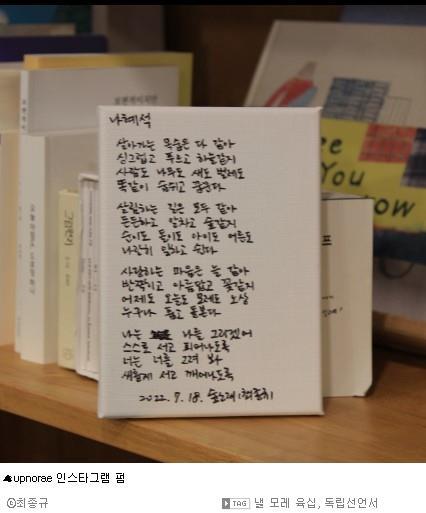 보편적이지만
나혜석
살아가는 목숨은 다 같아
싱그럽고 푸르고 하늘같지
사람도 나무도 새도 벌레도
똑같이 숨쉬고 꿈꾼다
살림하는 길은 모두 같아
든든하고 알차고 숲같지
순이도 돌이도 아이도 어른도
나란히 일하고 쉰다
사랑하는 마음은 늘 같아
반짝이고 아름답고 꽃같지
어제도 오늘도 모레도 노상
누구나 품고 돌본다
나는 나를 그리겠어
스스로 서고 피어나도록
너는 너를 그려 봐
새롭게 서고 깨어나도록
2022. 7. 18. 숲노래
You
upnorae 인스타그램 펌
ⓒ최종규
TAG 낼 모레 육십, 독립선언서